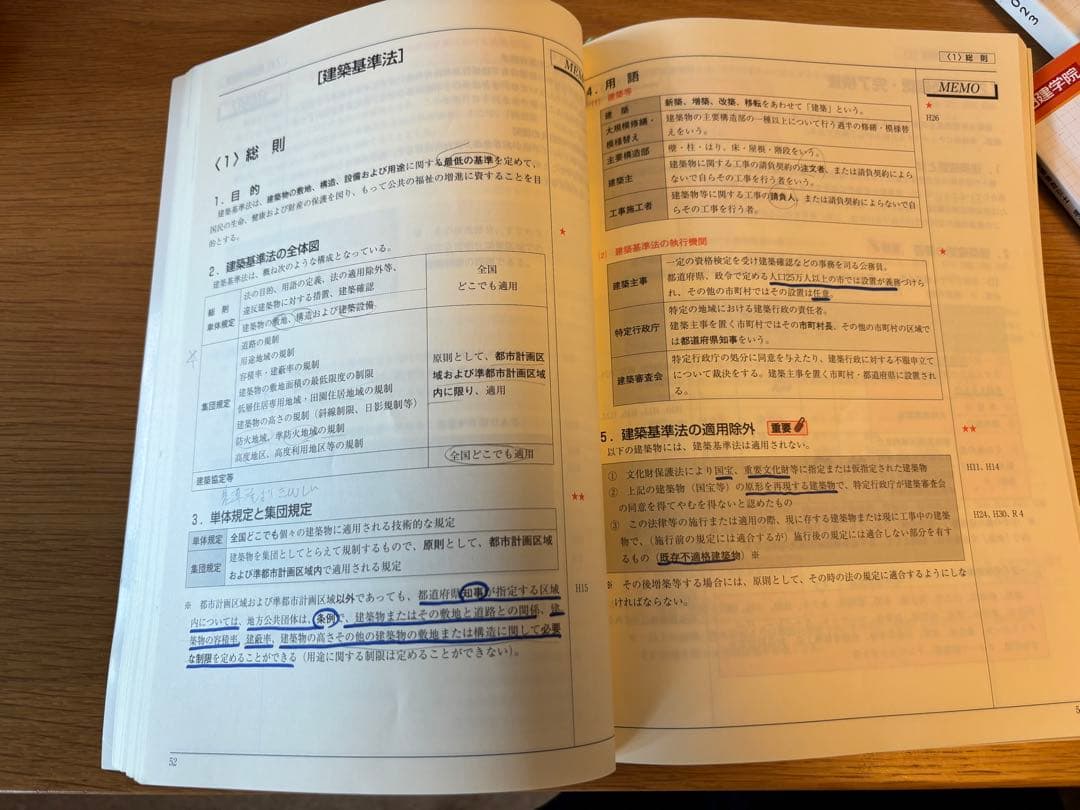 [建築基準法]
MEMO
〈1〉総 則
1．目 的
建築基準法は、建築物の敷地、構造、設備および用途に関する最低の基準を定めて、
国民の生命、健康および財産の保護を図り、もって公共の福祉の増進に資することを目
的とする。
2．建築基準法の全体図
建築基準法は、概ね次のような構成となっている。
総 則
法の目的、用語の定義、法の適用除外等、
違反建築物に対する措置、建築確認
全国
どこでも適用
単体規定
建築物の敷地、構造および建築設備
集団規定
道路の規制
用途地域の規制
容積率・建蔽率の規制
建築物の敷地面積の最低限度の制限
低層住居専用地域・田園住居地域の規制
建築物の高さの規制（斜線制限、日影規制等）
防火地域、準防火地域の規制
高度地区、高度利用地区等の規制
原則として、都市計画区
域および準都市計画区域
内に限り、適用
建築協定等
全国どこでも適用
3．単体規定と集団規定
★★
単体規定 全国どこでも個々の建築物に適用される技術的な規定
集団規定 建築物を集団としてとらえて規制するもので、原則として、都市計画区域
および準都市計画区域内で適用される規定
※ 都市計画区域および準都市計画区域以外であっても、都道府県知事が指定する区域
内については、地方公共団体は、条例で、建築物またはその敷地と道路との関係、建
築物の容積率、建蔽率、建築物の高さその他の建築物の敷地または構造に関して必要
な制限を定めることができる（用途に関する制限は定めることができない）。
H15
★
52
〈1〉総 則
MEMO
4．用 語
(1) 建築等
★
H26
建 築 新築、増築、改築、移転をあわせて「建築」という。
大規模修繕・
模様替え
建築物の主要構造部の一種以上について行う過半の修繕・模様替
えをいう。
主要構造部 壁・柱・はり、床・屋根・階段をいう。
建築主 建築物に関する工事の請負契約の注文者、または請負契約によら
ないで自らその工事を行う者をいう。
工事施工者 建築物等に関する工事の請負人、または請負契約によらないで自
らその工事を行う者。
(2) 建築基準法の執行機関
★
建築主事 一定の資格検定を受け建築確認などの事務を司る公務員。
都道府県、政令で定める人口25万人以上の市では設置が義務づけ
られ、その他の市町村ではその設置は任意。
特定行政庁 特定の地域における建築行政の責任者。
建築主事を置く市町村ではその市町村長、その他の市町村の区域で
は都道府県知事をいう。
建築審査会 特定行政庁の処分に同意を与えたり、建築行政に対する不服申立て
について裁決をする。建築主事を置く市町村・都道府県に設置され
る。
5．建築基準法の適用除外 重要
★★
以下の建築物には、建築基準法は適用されない。
① 文化財保護法により国宝、重要文化財等に指定または仮指定された建築物
H11、H14
② 上記の建築物（国宝等）の原形を再現する建築物で、特定行政庁が建築審査会
の同意を得てやむを得ないと認めたもの
③ この法律等の施行または適用の際、現に存する建築物または現に工事中の建築
H24、H30、R4
物で、（施行前の規定には適合するが）施行後の規定には適合しない部分を有す
るもの（既存不適格建築物）※
※ その後増築等する場合には、原則として、その時の法の規定に適合するようにしな
ければならない。
023
建学院